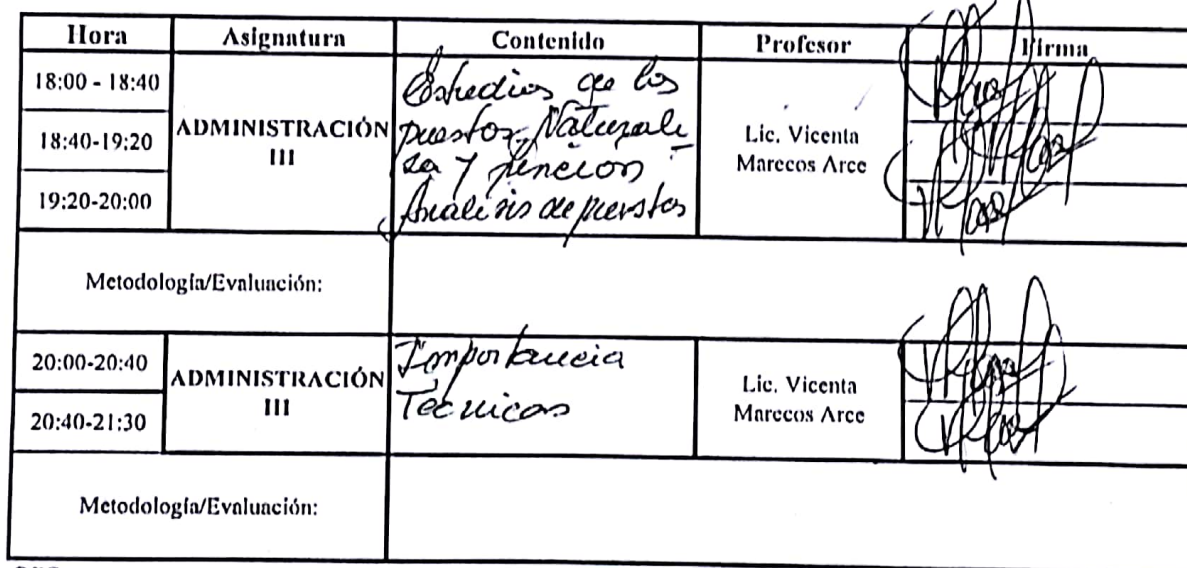 Hora Asignatura Contenido Profesor Firma
18:00 - 18:40
18:40-19:20
19:20-20:00
ADMINISTRACIÓN
III
Estudios de los
puestos, Naturale
za y función
Analisis de puestos
Lic. Vicenta
Marecos Arce
Metodología/Evaluación:
20:00-20:40
20:40-21:30
ADMINISTRACIÓN
III
Importancia
Técnicas
Lic. Vicenta
Marecos Arce
Metodología/Evaluación: